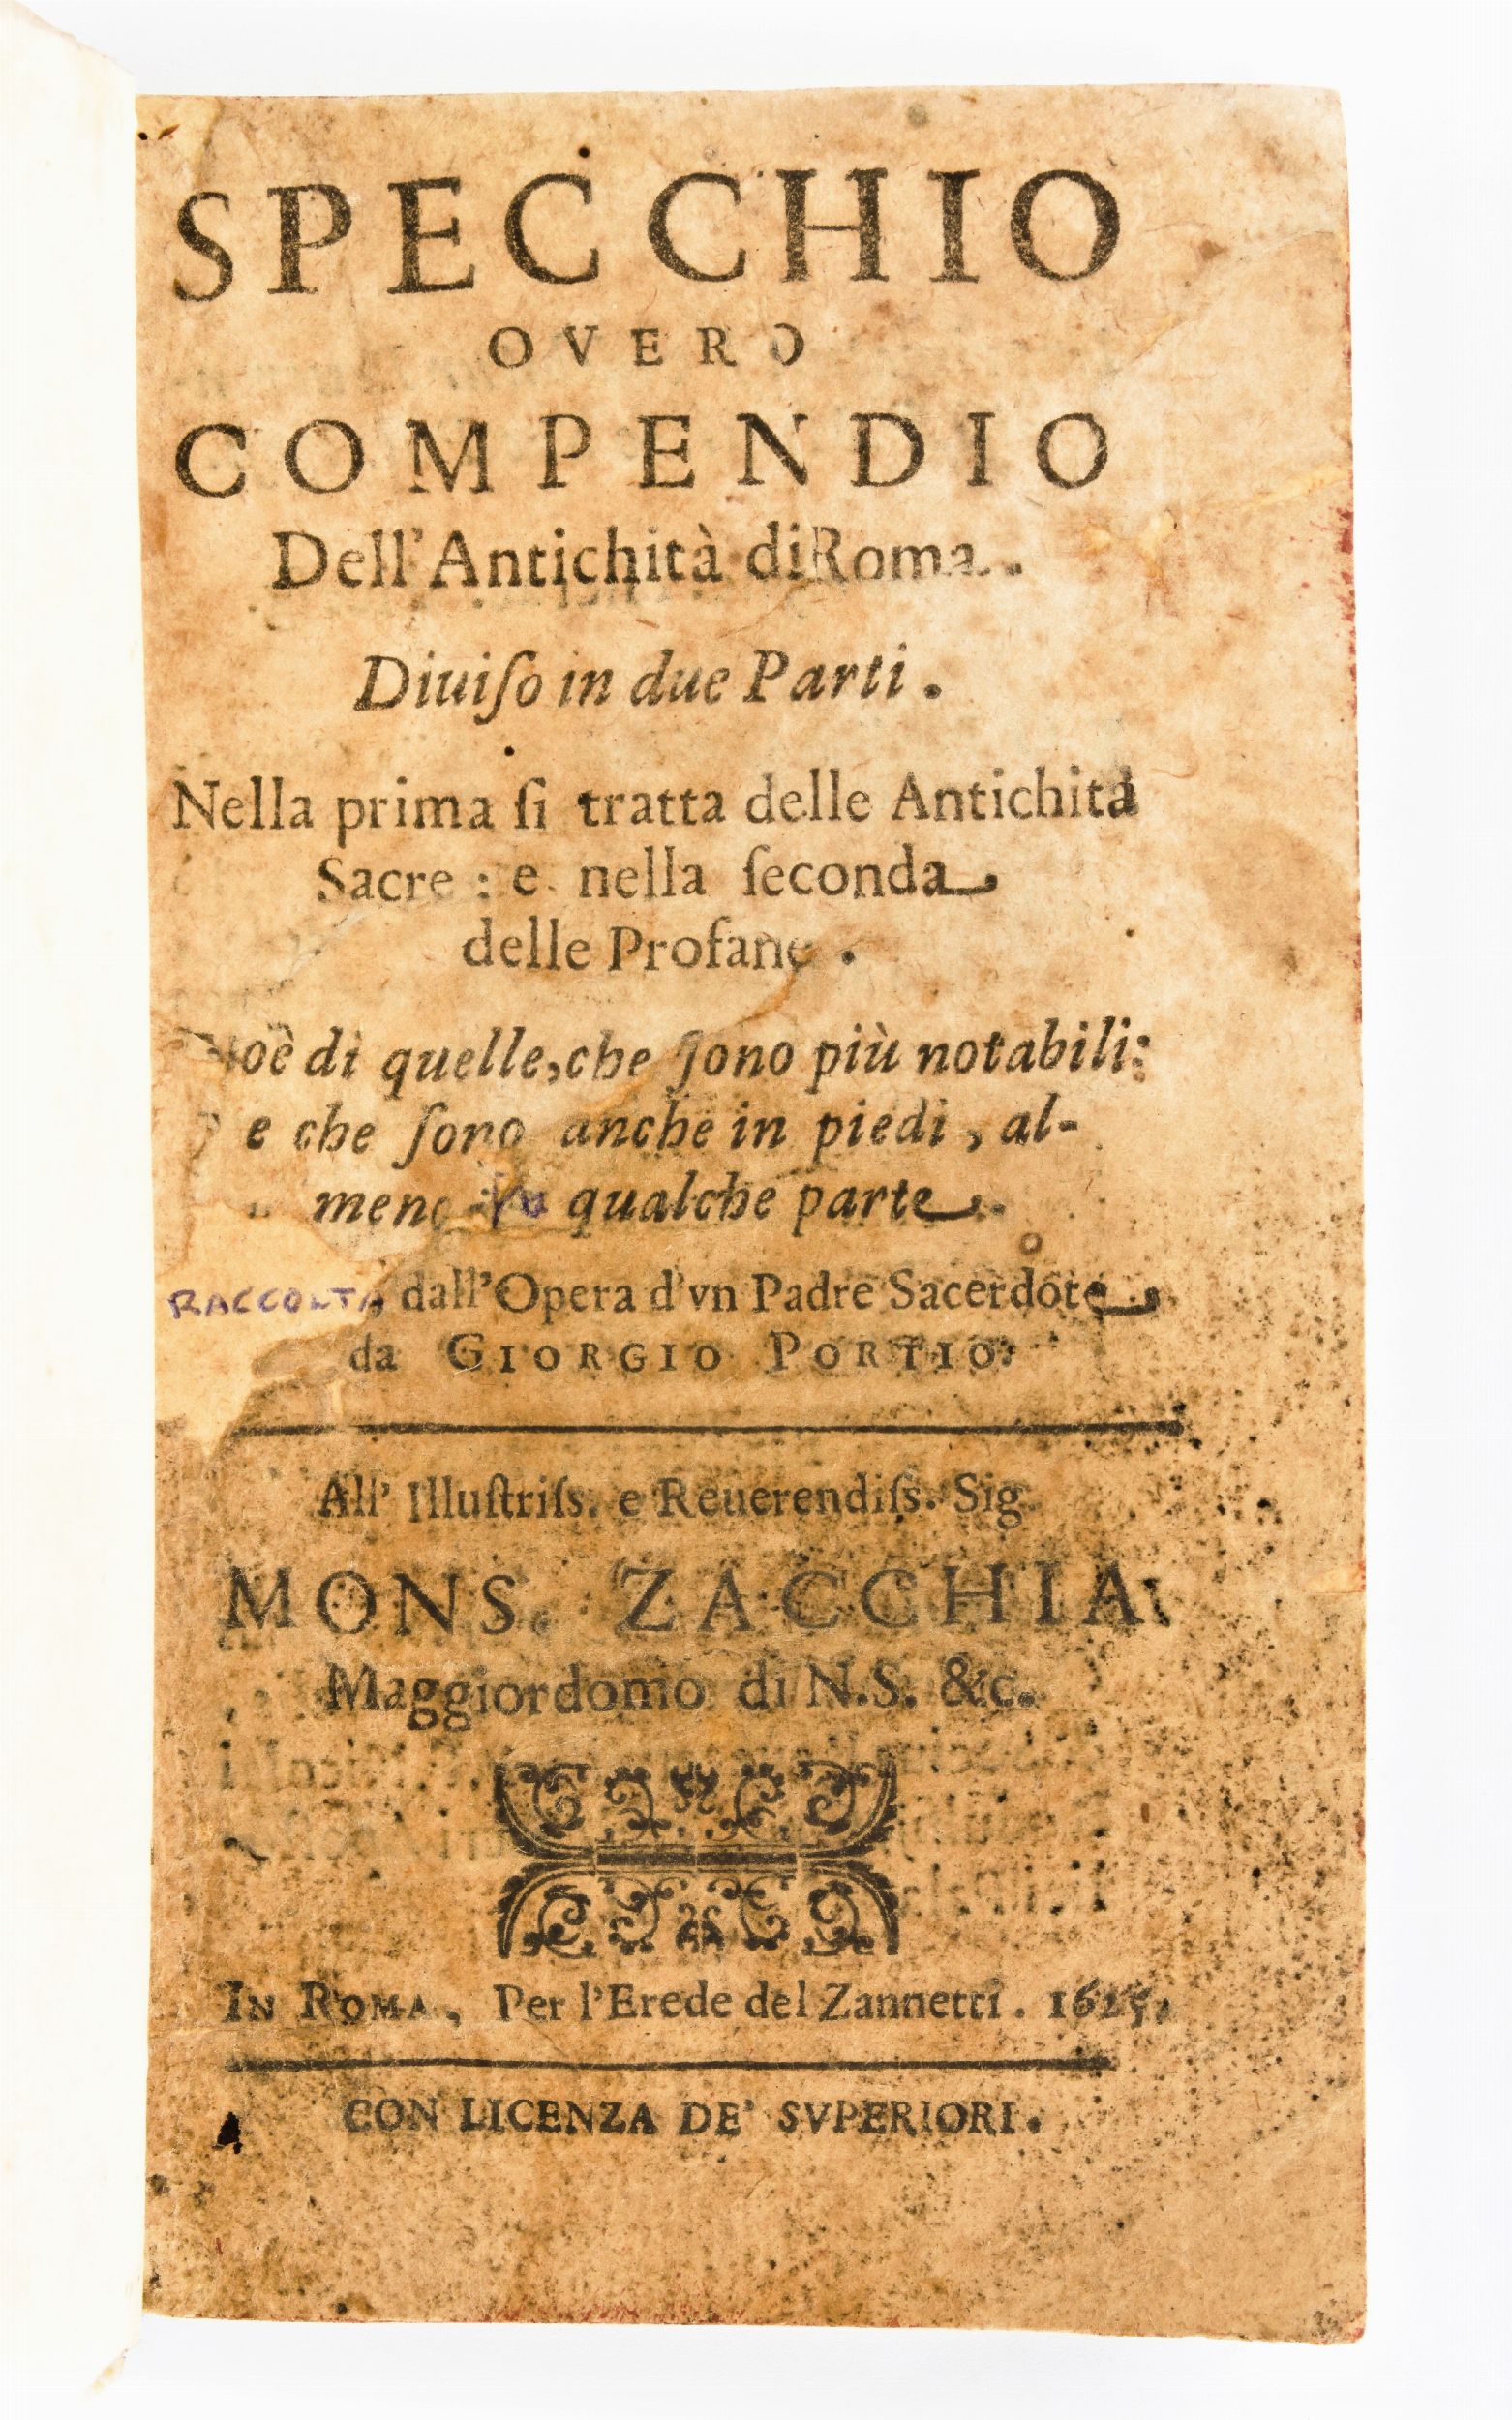 SPECCHIO
OVERO
COMPENDIO
Dell'Antichità di Roma.
Diuiſo in due Parti.
Nella prima ſi tratta delle Antichità
Sacre: e nella ſeconda
delle Profane.
di quelle, che ſono più notabili:
e che ſono anche in piedi, al-
meno in qualche parte.
RACCOLTA dall'Opera d'vn Padre Sacerdote
da GIORGIO PORTIO.
All' Illuſtriſs. e Reuerendiſs. Sig.
MONS. ZACCHIA
Maggiordomo di N.S. &c.
IN ROMA, Per l'Erede del Zannetti. 1625.
CON LICENZA DE' SVPERIORI.